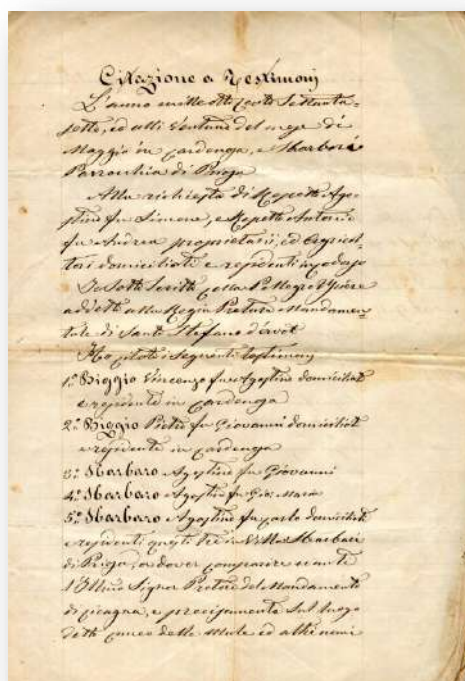 Citazione a Testimonj
L'anno mille otto cento Settanta
sette, ed alli Ventuno del mese di
Maggio in Cardenga, e Sbarbori
Parrocchia di Prioja
Alla richiesta di Repetti Ago-
stino fu Simone, e Repetto Antonio
fu Andrea proprietarii, ed
domiciliati e residenti in
Io Sotto Scritto Cella Pellegro Usciere
addetto alla Regia Pretura Mandamen-
tale di Santo Stefano d'Avet
Ho citato i Seguenti testimonj
1.º Biggio Vincenzo fu Agostino domiciliato
e residente in Cardenga
2.º Biggio Pietro fu Giovanni domiciliato
e residente in Cardenga
3.º Sbarbaro Agostino fu Giovanni
4.º Sbarbaro Agostino fu Gio: Maria
5.º Sbarbaro Agostino fu Carlo domiciliati
e residenti questi tre in Villa Sbarbari
di Prioja, a dover comparire avanti
l'Ill.mo Signor Pretore del Mandamento
di Cicagna, e precisamente sul luogo
detto delle ed